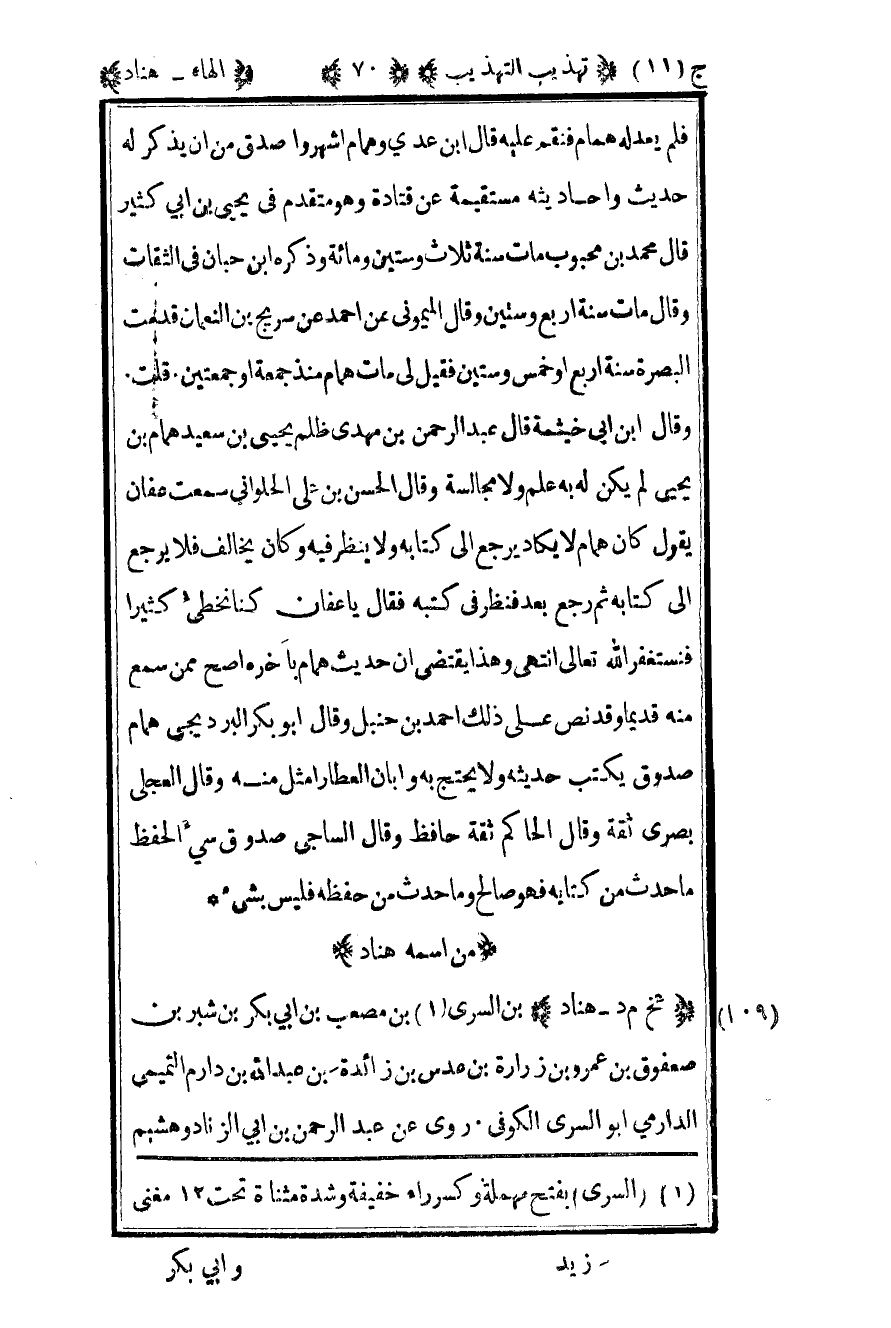 ج (١١) ﴿ تهذيب التهذيب ﴾ ﴿ ٧٠ ﴾ ﴿ الهاء ـ هناد ﴾
فلم يعدله همام فنقم عليه قال ابن عدي وهمام اشهر وا صدق من ان يذكر له
حديث واحاديثه مستقيمة عن قتادة وهو متقدم فى يحيى بن ابي كثير
قال محمد بن محبوب مات سنة ثلاث وستين ومائة وذكره ابن حبان فى الثقات
وقال مات سنة اربع وستين وقال الميمونى عن احمد عن سريج بن النعمان قدمت
البصرة سنة اربع او خمس وستين فقيل لى مات همام منذ جمعة او جمعتين . قلت .
وقال ابن ابى خيثمة قال عبد الرحمن بن مهدى ظلم يحيى بن سعيد همام بن
يحيى لم يكن له به علم ولا مجالسة وقال الحسن بن على الحلواني سمعت عفان
يقول كان همام لا يكاد يرجع الى كتابه ولا ينظر فيه وكان يخالف فلا يرجع
الى كتابه ثم رجع بعد فنظر فى كتبه فقال يا عفان كنا نخطىء كثيرا
فنستغفر الله تعالى انتهى وهذا يقتضى ان حديث همام بآخره اصح ممن سمع
منه قديما وقد نص على ذلك احمد بن حنبل وقال ابو بكر البرديجى همام
صدوق يكتب حديثه ولا يحتج به وابان العطار امثل منه وقال العجلى
بصرى ثقة وقال الحاكم ثقة حافظ وقال الساجى صدوق سيء الحفظ
ما حدث من كتابه فهو صالح وما حدث من حفظه فليس بشىء *
﴿ من اسمه هناد ﴾
(١٠٩) ﴿ شخ م د ـ هناد ﴾ بن السرى (١) بن مصعب بن ابي بكر بن شبر بن
صعفوق بن عمرو بن زرارة بن عدس بن زائدة ـ بن عبدالله بن دارم التميمى
الدارمي ابو السرى الكوفى . روى عن عبد الرحمن بن ابي الزناد وهشيم
(١) (السرى) بفتح مهملة وكسر راء خفيفة وشدة مثناة تحت ١٢ مغنى
ـ زيد
وابي بكر